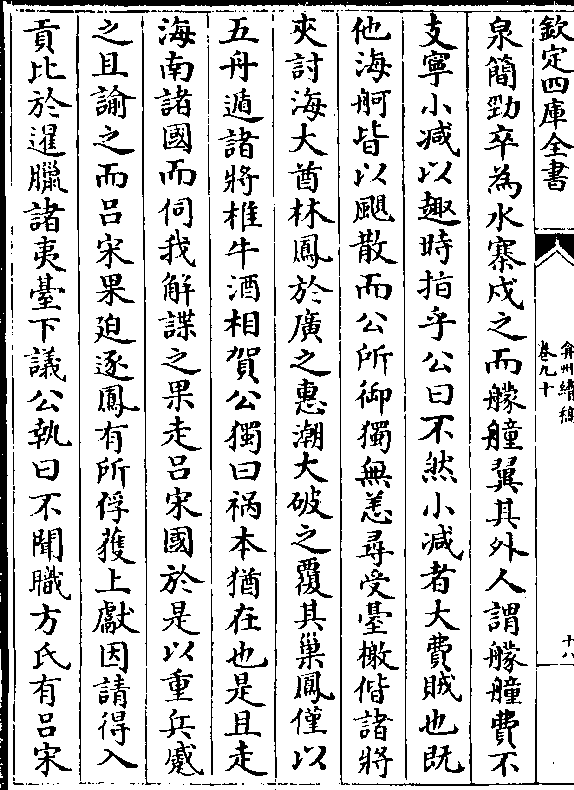 欽定四庫全書
弇州續稿
卷九十
十八
泉簡勁卒為水寨戍之而艨艟翼其外人謂艨艟費不
支寧小减以趣時指乎公曰不然小减者大費賊也既
他海舸皆以颶散而公所御獨無恙尋受臺檄偕諸將
夾討海大酋林鳳於廣之惠潮大破之覆其巢鳳僅以
五舟遁諸將椎牛酒相賀公獨曰禍本猶在也是且走
海南諸國而伺我解諜之果走吕宋國於是以重兵蹙
之且諭之而吕宋果廹逐鳳有所俘獲上獻因請得入
貢比於暹臘諸夷臺下議公執曰不聞職方氏有吕宋